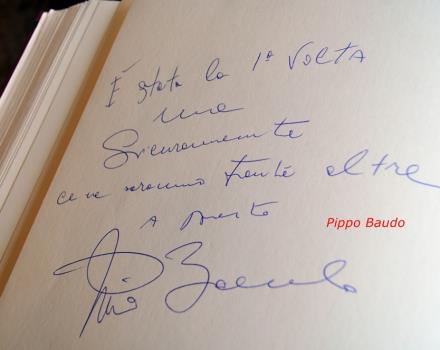 È stata la 1ª VOLTA
ma
Sicuramente
ce ne saranno tante altre
A presto
Pippo Baudo
Pippo Baudo